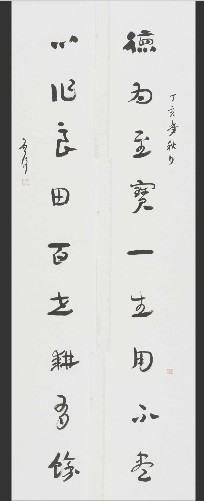 丁亥年秋月
德為至寶一生用不盡
心作良田百世耕有餘